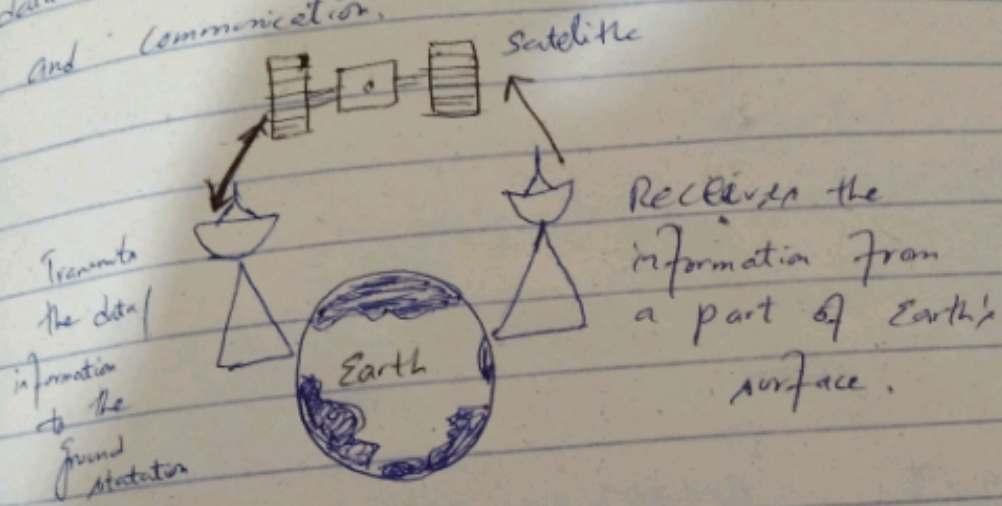 and communication.
Satelithe
Transmits
the data/
information
to the
ground
statation
Earth
Receives the
information from
a part of Earth's
surface.